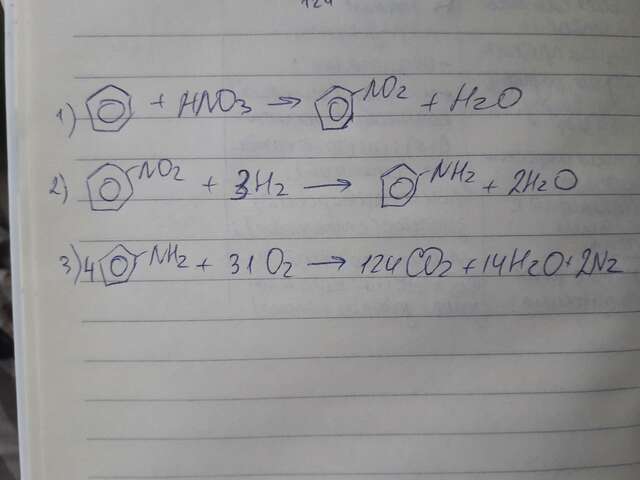 124
1) + HNO3 → NO2 + H2O
2) NO2 + 3H2 → NH2 + 2H2O
3) 4 NH2 + 31 O2 → 124CO2 + 14H2O + 2N2